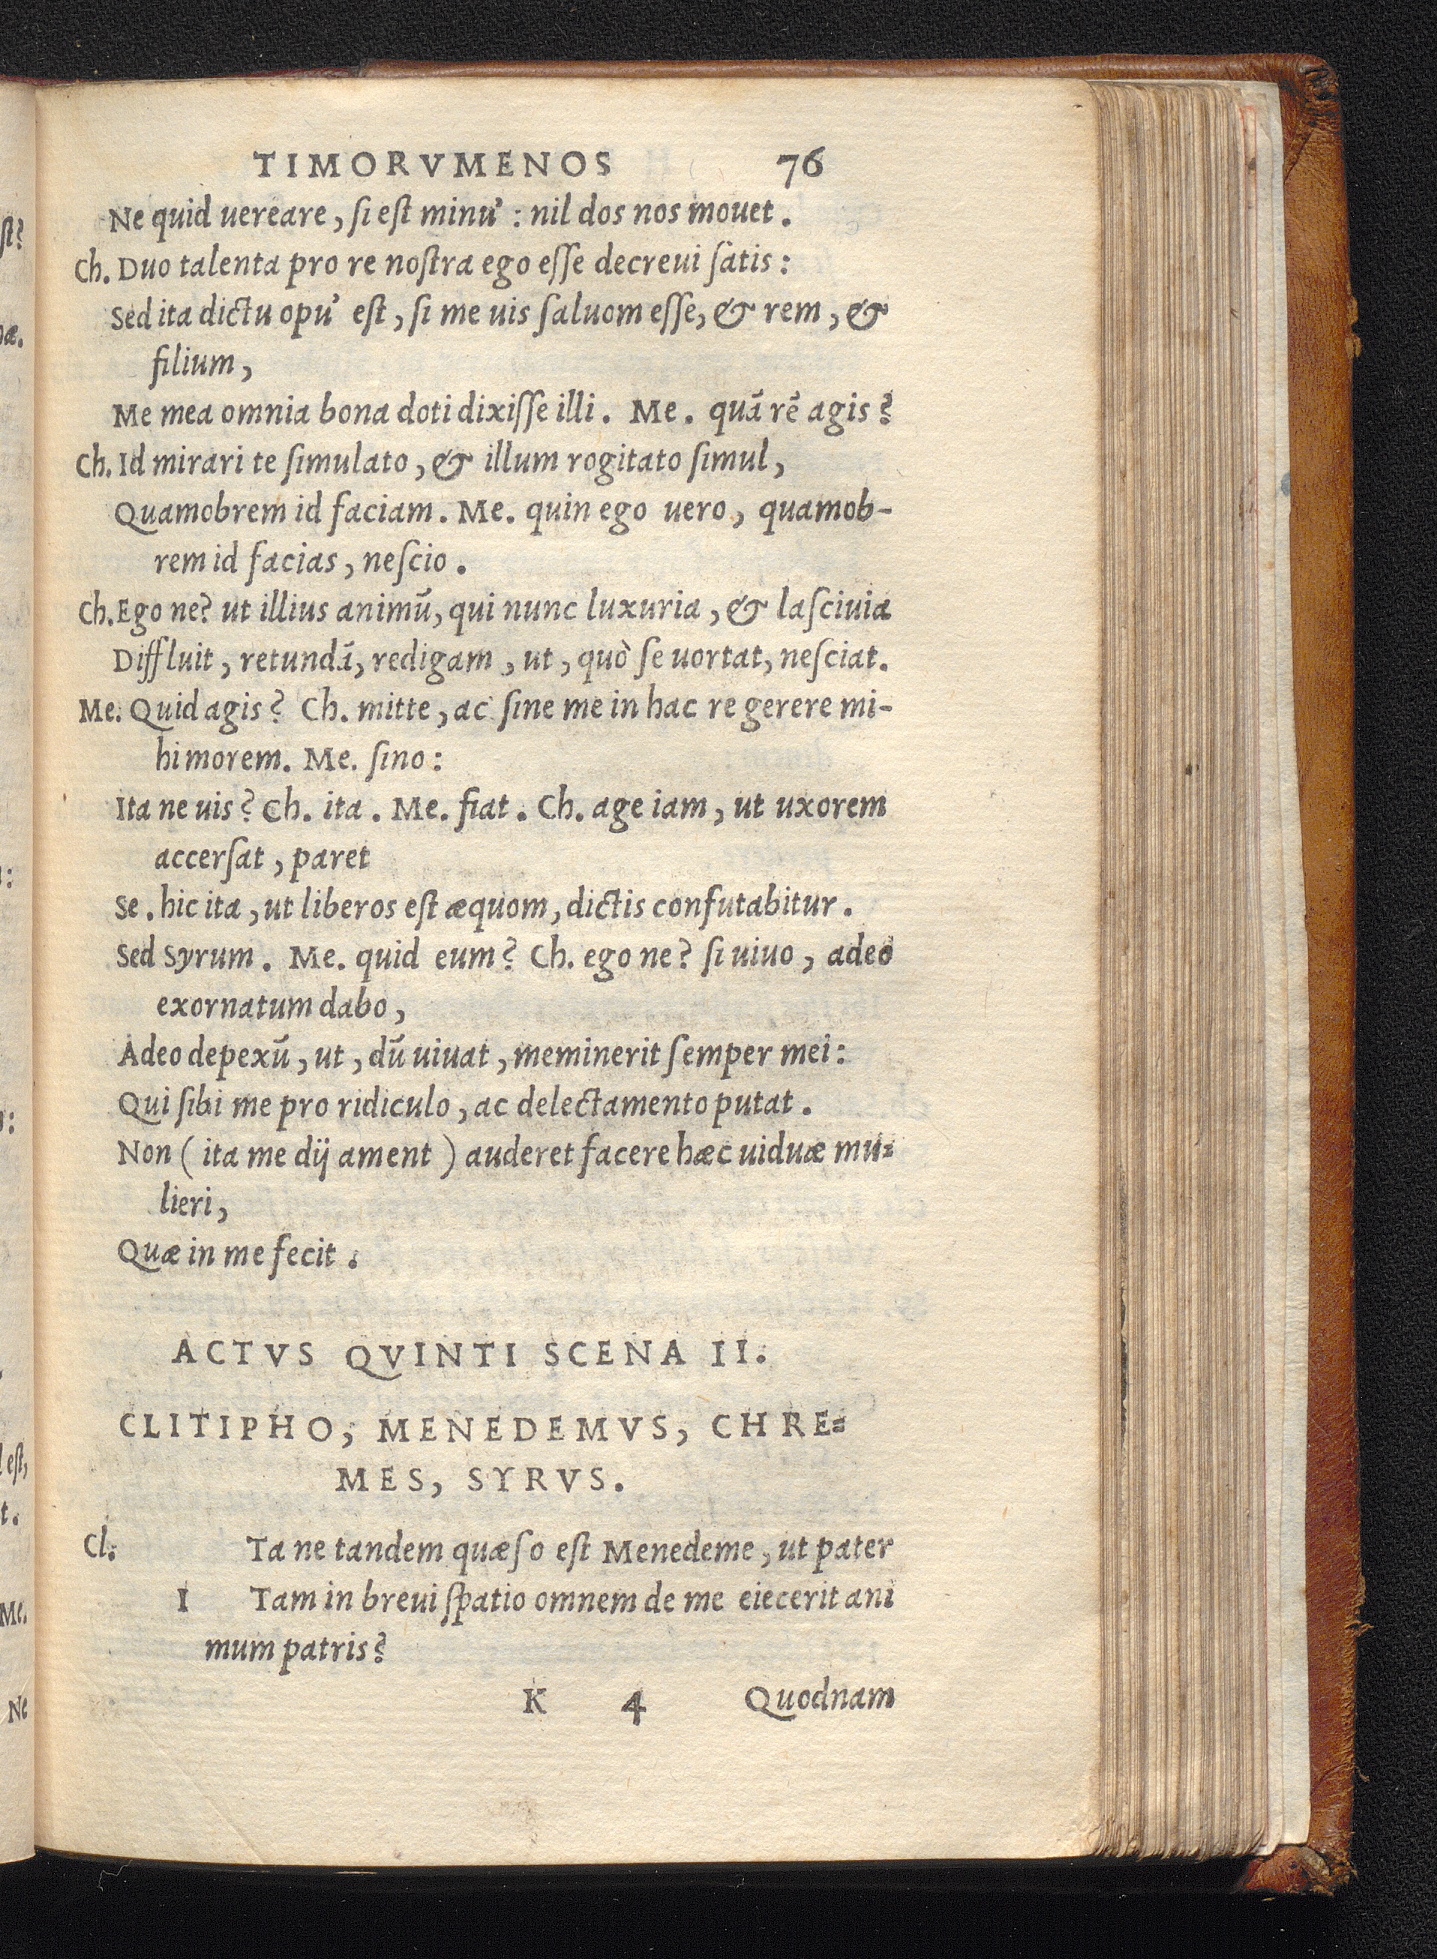 TIMORVMENOS 76
Ne quid uereare, si est minu' : nil dos nos mouet.
Ch. Duo talenta pro re nostra ego esse decreui satis :
Sed ita dictu opu' est, si me uis saluom esse, & rem, &
filium,
Me mea omnia bona doti dixisse illi. Me. quā rē agis?
Ch. Id mirari te simulato, & illum rogitato simul,
Quamobrem id faciam. Me. quin ego uero, quamob-
rem id facias, nescio.
Ch. Ego ne? ut illius animū, qui nunc luxuria, & lasciuia
Diffluit, retundā, redigam, ut, quò se uortat, nesciat.
Me. Quid agis? Ch. mitte, ac sine me in hac re gerere mi-
hi morem. Me. sino :
Ita ne uis? Ch. ita. Me. fiat. Ch. age iam, ut uxorem
accersat, paret
Se. hic ita, ut liberos est æquom, dictis confutabitur.
Sed Syrum. Me. quid eum? Ch. ego ne? si uiuo, adeo
exornatum dabo,
Adeo depexū, ut, dū uiuat, meminerit semper mei :
Qui sibi me pro ridiculo, ac delectamento putat.
Non (ita me dij ament) auderet facere hæc uiduæ mu-
lieri,
Quæ in me fecit.
ACTVS QVINTI SCENA II.
CLITIPHO, MENEDEMVS, CHRE-
MES, SYRVS.
Cl. Ta ne tandem quæso est Menedeme, ut pater
I Tam in breui spatio omnem de me eiecerit ani
mum patris?
K 4 Quodnam
st?
æ.
:
:
est,
t.
Me.
Ne